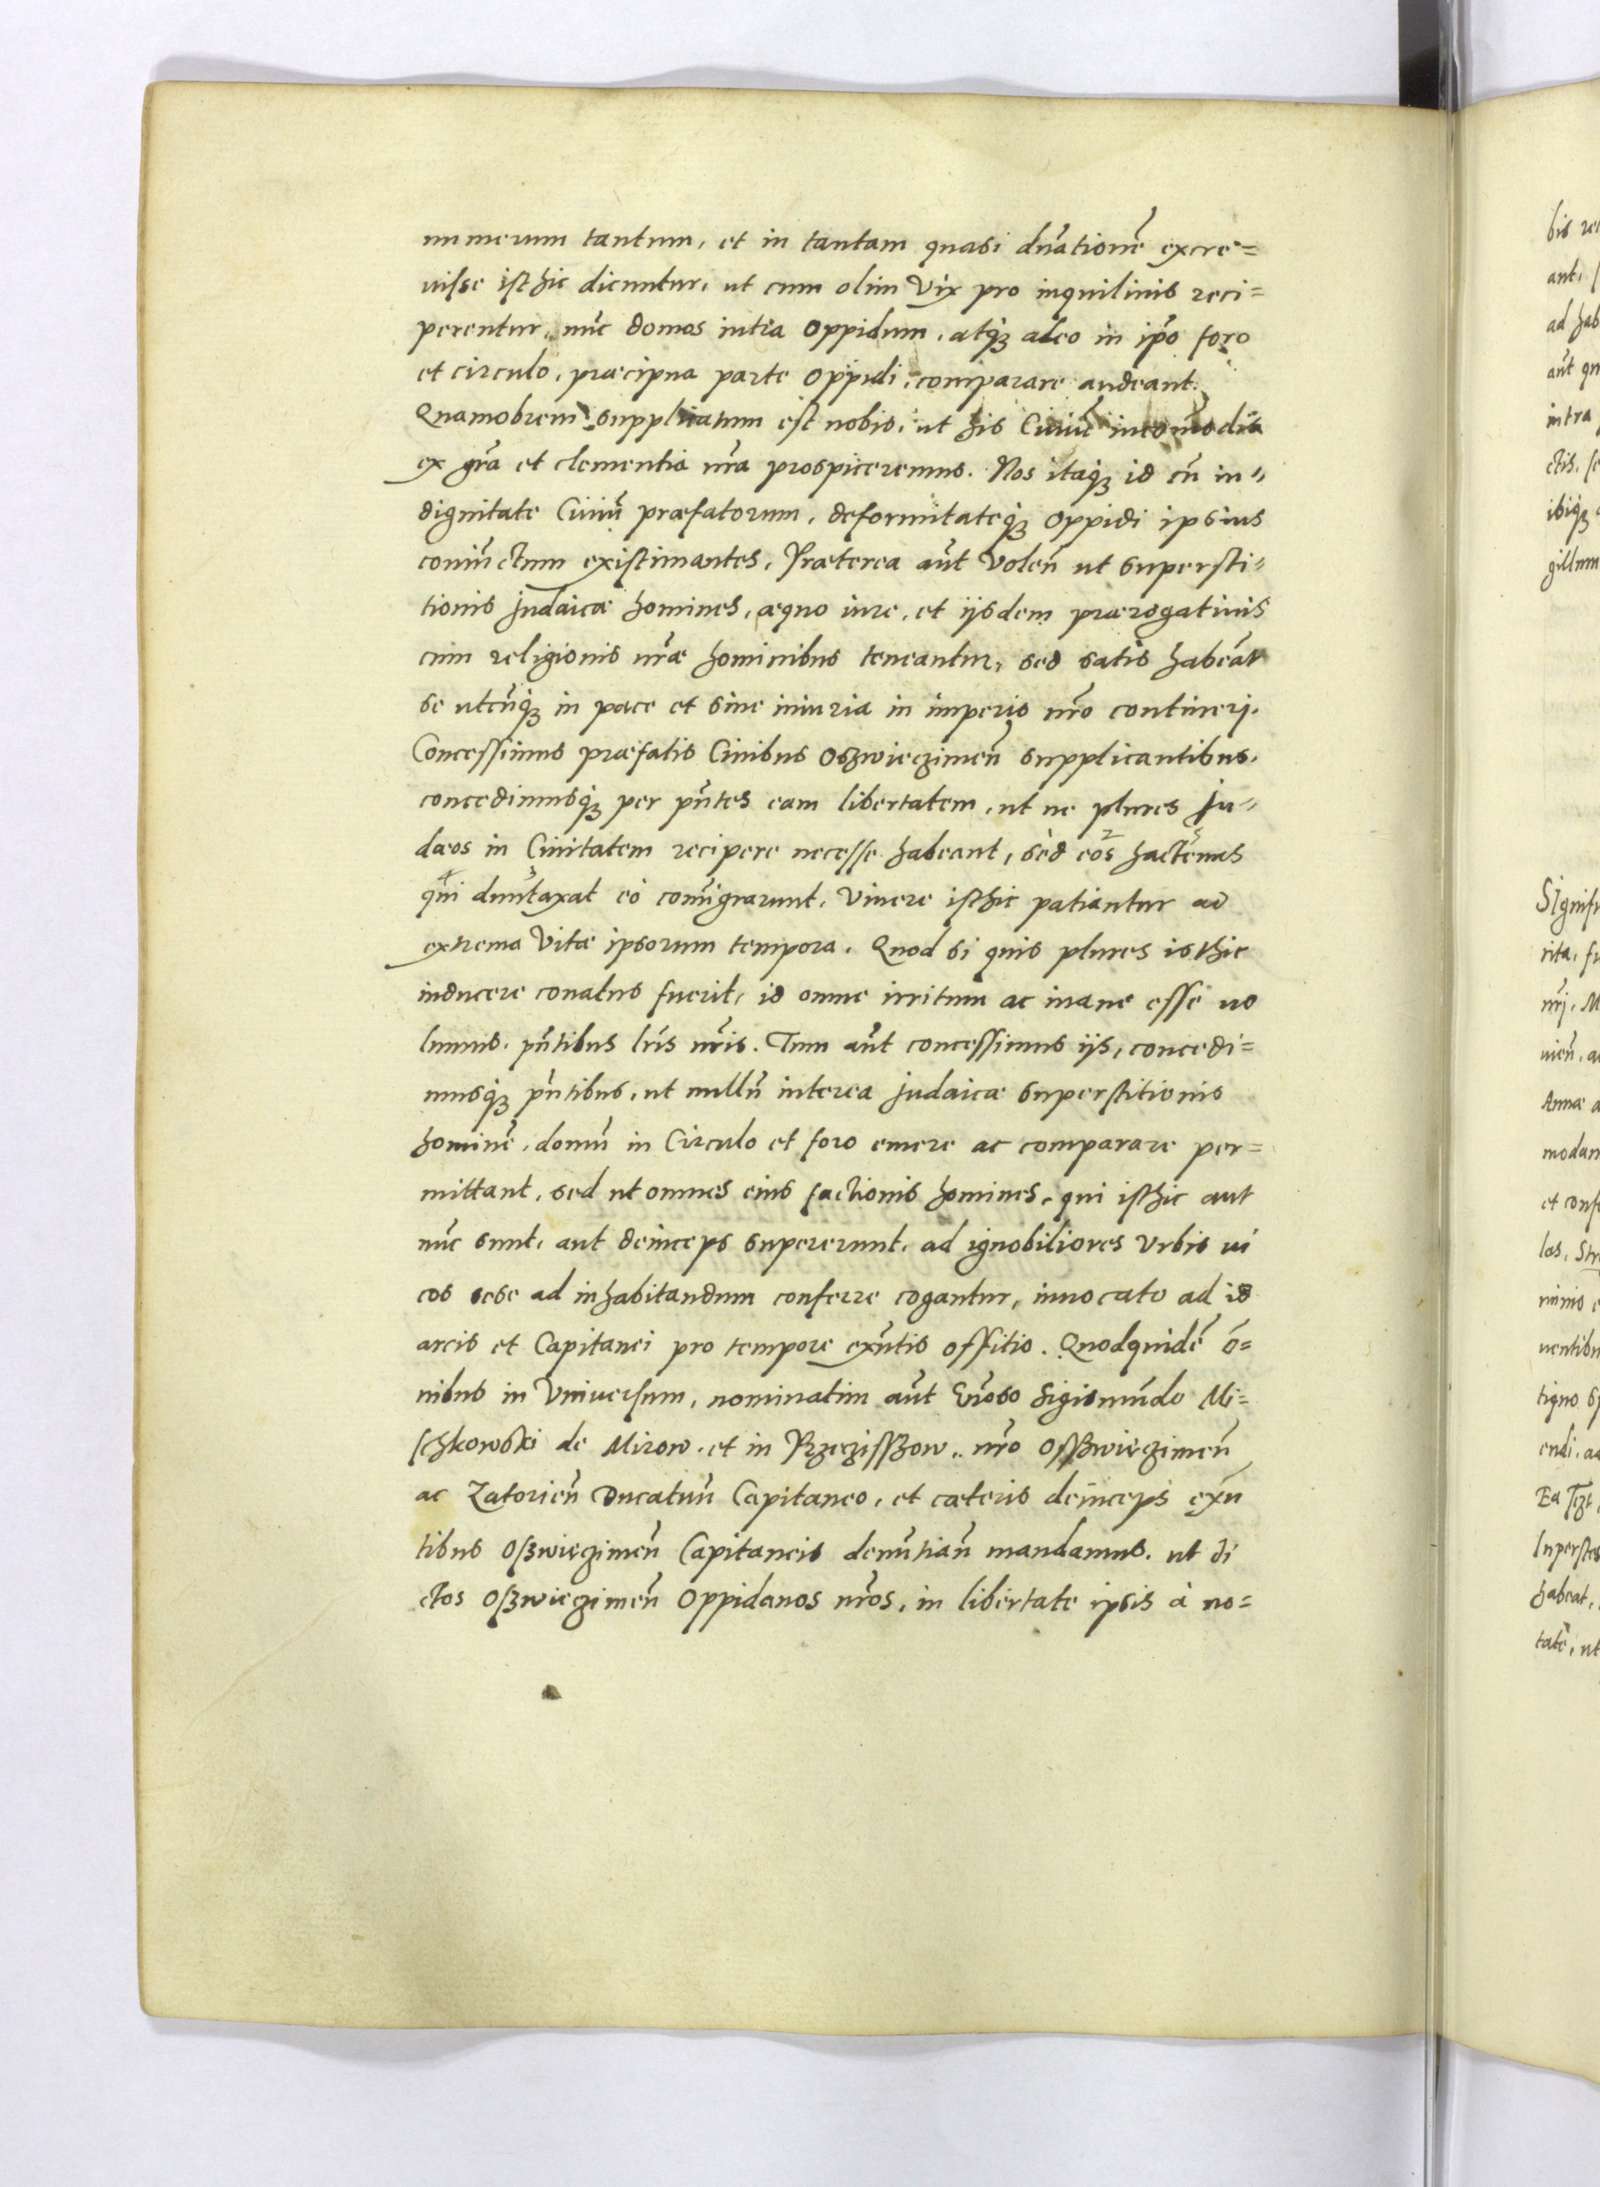 numerum tantum, et in tantam quasi dn̄ationē excre=
uisse isthic dicuntur, ut cum olim Vix pro inquilinis reci=
perentur, nūc domos intra Oppidum, atq̨ adeo in ip̄o foro
et circulo, præcipua parte Oppidi, comparare audeant.
Quamobrem supplicatum est nobis, ut his Ciuiū incōmodis
ex gr̄a et clementia nr̄a prospiceremus. Nos itaq̨ id cū in=
dignitate Ciuiū præfatorum, deformitateq̨ Oppidi ipsius
coniūctum existimantes, Præterea aūt Volen̄ ut supersti=
tionis Judaicæ homines, æquo iure, et ijsdem prærogatiuis
cum religionis nr̄æ hominibus teneantur, sed satis habeāt
se utcūq̨ in pace et sine iniuria in imperio nr̄o contineri.
Concessimus præfatis Ciuibus Oszwieczimen̄ supplicantibus,
concedimusq̨ per pn̄tes eam libertatem, ut ne plures Ju=
dæos in Ciuitatem recipere necesse habeant, sed eos hactenus
qui dūtaxat eò com̄igrarunt, Viuere isthic patiantur ad
extrema Vitæ ipsorum tempora. Quod si quis plures isthic
inducere conatus fuerit, id omne irritum ac inane esse uo
lumus, pn̄tibus lr̄is nr̄is. Tum aūt concessimus ijs, concedi=
musq̨ pn̄tibus, ut nullū interea Judaicæ superstitionis
hominē, domū in Circulo et foro emere ac comparare per=
mittant, sed ut omnes eius factionis homines, qui isthic aut
nūc sunt, aut deinceps supererunt, ad ignobiliores Vrbis ui
cos sese ad inhabitandum conferre cogantur, inuocato ad id
arcis et Capitanei pro tempore exn̄tis offitio. Quodquidē ō=
nibus in Vniuersum, nominatim aūt Gn̄oso Sigismūdo Mi=
schkowski de Mirow, et in Przeczisszow, nr̄o Osswieczimen̄
ac Zatorien̄ Ducatuū Capitaneo, et cæteris deinceps exn̄
tibus Oßwieczimen̄ Capitaneis denūtian̄ mandamus, ut di
ctos Oßwieczimen̄ Oppidanos nr̄os, in libertate ipsis à no=